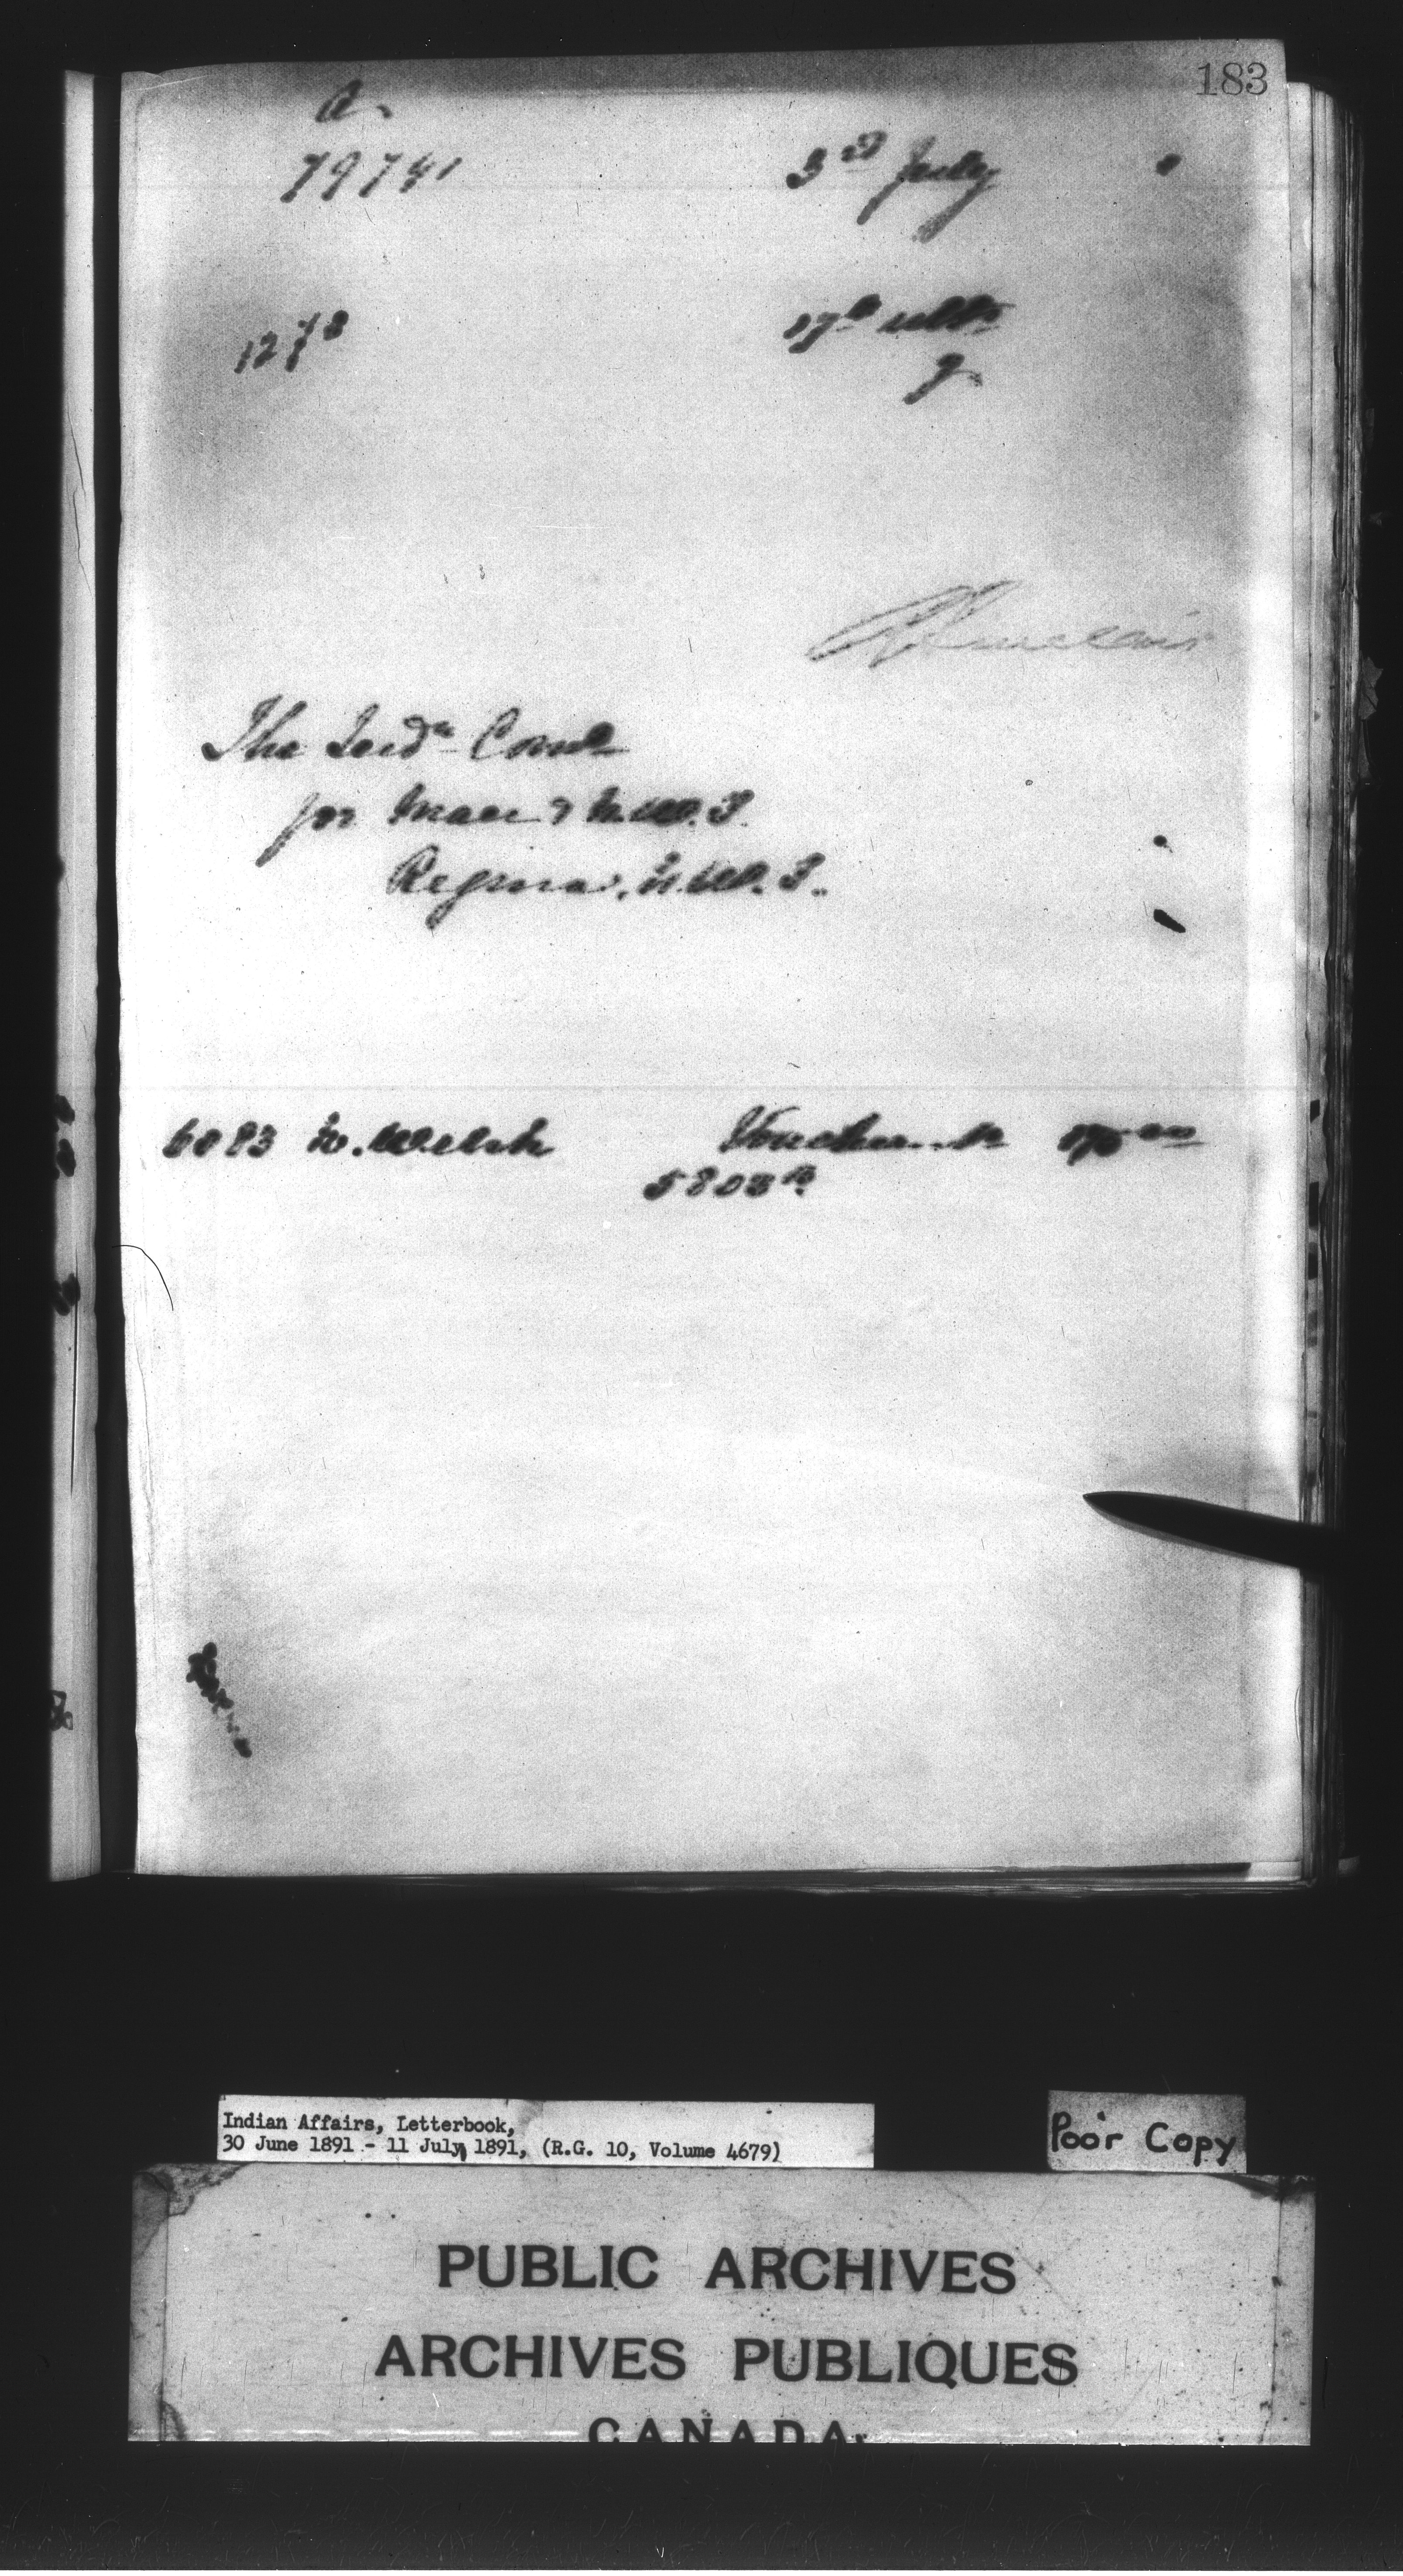 183
a.
79741 3rd July
1273 17th ulto
J
The Indn Comr
for Man & N.W.T.
Regina, N.W.T.
6083 N. Welsh Voucher
5803
Indian Affairs, Letterbook,
30 June 1891 - 11 July 1891, (R.G. 10, Volume 4679)
Poor Copy
PUBLIC ARCHIVES
ARCHIVES PUBLIQUES
CANADA